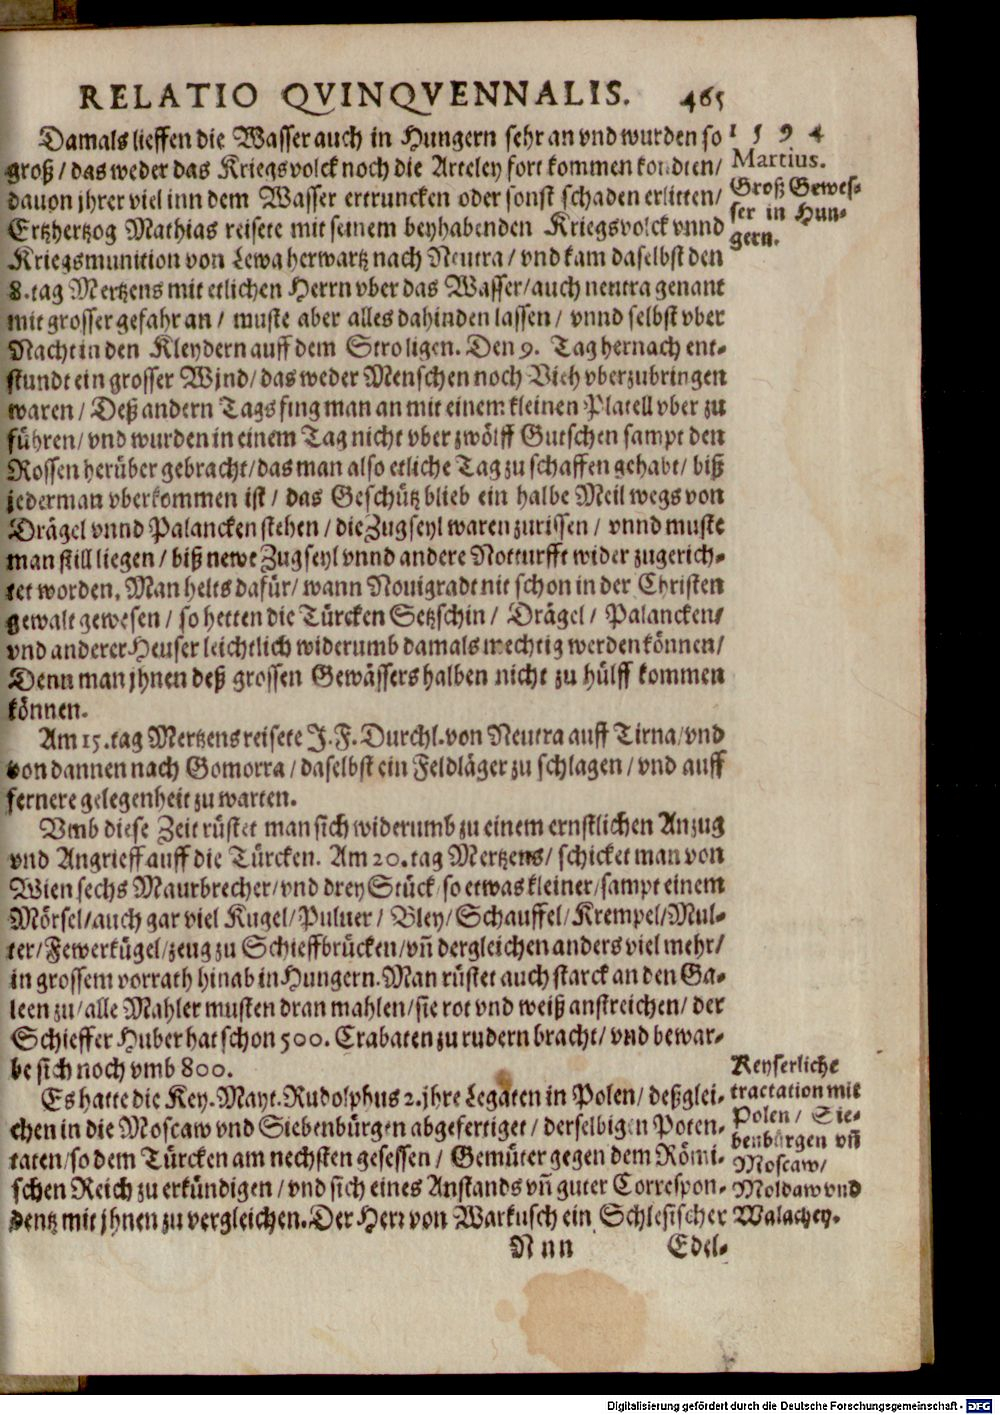 RELATIO QVINQVENNALIS. 465
1594
Martius.
Damals lieffen die Wasser auch in Hungern sehr an vnd wurden so
groß / das weder das Kriegsvolck noch die Arteley fort kommen kondten /
dauon jhrer viel inn dem Wasser ertruncken oder sonst schaden erlitten /
Groß Gewes-
ser in Hun-
gern.
Ertzhertzog Mathias reisete mit seinem beyhabenden Kriegsvolck vnnd
Kriegsmunition von Lewa herwartz nach Neutra / vnd kam daselbst den
8. tag Mertzens mit etlichen Herrn vber das Wasser / auch neutra genant
mit grosser gefahr an / muste aber alles dahinden lassen / vnnd selbst vber
Nacht in den Kleydern auff dem Stro ligen. Den 9. Tag hernach ent-
stundt ein grosser Wjnd / das weder Menschen noch Vieh vberzubringen
waren / Deß andern Tags fing man an mit einem kleinen Platell vber zu
führen / vnd wurden in einem Tag nicht vber zwölff Gutschen sampt den
Rossen herüber gebracht / das man also etliche Tag zu schaffen gehabt / biß
jederman vberkommen ist / das Geschütz blieb ein halbe Meil wegs von
Drägel vnnd Palancken stehen / die Zugseyl waren zurissen / vnnd muste
man still liegen / biß newe Zugseyl vnnd andere Notturfft wider zugerich-
tet worden. Man helts dafür / wann Nouigradt nit schon in der Christen
gewalt gewesen / so hetten die Türcken Setzschin / Drägel / Palancken /
vnd anderer Heuser leichtlich widerumb damals mechtig werden können /
Denn man jhnen deß grossen Gewässers halben nicht zu hülff kommen
können.
Am 15. tag Mertzens reisete J. F. Durchl. von Neutra auff Tirna / vnd
von dannen nach Gomorra / daselbst ein Feldläger zu schlagen / vnd auff
fernere gelegenheit zu warten.
Vmb diese Zeit rüstet man sich widerumb zu einem ernstlichen Anzug
vnd Angrieff auff die Türcken. Am 20. tag Mertzens / schicket man von
Wien sechs Maurbrecher / vnd drey Stück / so etwas kleiner / sampt einem
Mörsel / auch gar viel Kugel / Puluer / Bley / Schauffel / Krempel / Mul-
ter / Fewerkügel / zeug zu Schieffbrücken / vn̄ dergleichen anders viel mehr /
in grossem vorrath hinab in Hungern. Man rüstet auch starck an den Ga-
leen zu / alle Mahler musten dran mahlen / sie rot vnd weiß anstreichen / der
Schieffer Huber hat schon 500. Crabaten zu rudern bracht / vnd bewar-
be sich noch vmb 800.
Es hatte die Key. Mayt. Rudolphus 2. jhre Legaten in Polen / deßglei-
chen in die Moscaw vnd Siebenbürgen abgefertiget / derselbigen Poten-
taten / so dem Türcken am nechsten gesessen / Gemüter gegen dem Römi-
schen Reich zu erkündigen / vnd sich eines Anstands vn̄ guter Correspon-
dentz mit jhnen zu vergleichen. Der Herr von Warkusch ein Schlesischer
Keyserliche
tractation mit
Polen / Sie-
benbürgen vn̄
Moscaw /
Moldaw vnd
Walachey.
Nnn Edel-
Digitalisierung gefördert durch die Deutsche Forschungsgemeinschaft - DFG